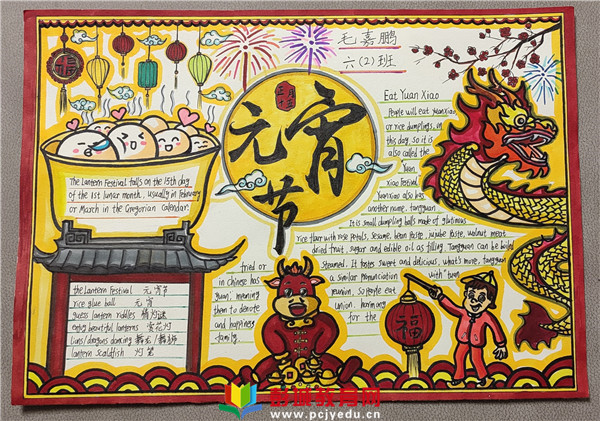 毛嘉鹏
六(2)班
正月
十五
元宵
节
福
The Lantern Festival falls on the 15th day
of the 1st lunar month, usually in February
or March in the Gregorian calendar.
the lantern festival 元宵节
rice glue ball 元宵
guess lantern riddles 猜灯谜
enjoy beautiful lanterns 赏花灯
lions/dragons dancing 舞龙/舞狮
lantern
Eat Yuan Xiao
People will eat yuanxiao,
or rice dumplings, on
this day, so it is
also called the
Yuan
xiao Festival
Yuanxiao also has
another name, tangyuan
It is small dumpling balls made of glutinous
rice flour with rose petals, sesame, bean paste, jujube paste, walnut meat,
dried fruit, sugar and edible oil as filling. Tangyuan can be boiled
fried or steamed. It tastes sweet and delicious, what's more, tangyuan
in Chinese has a similar pronunciation with "tuan
yuan", meaning reunion. so people eat
them to denote union, harmony
and happiness for the
family.
福
彭城教育网
www.pcjyedu.cn